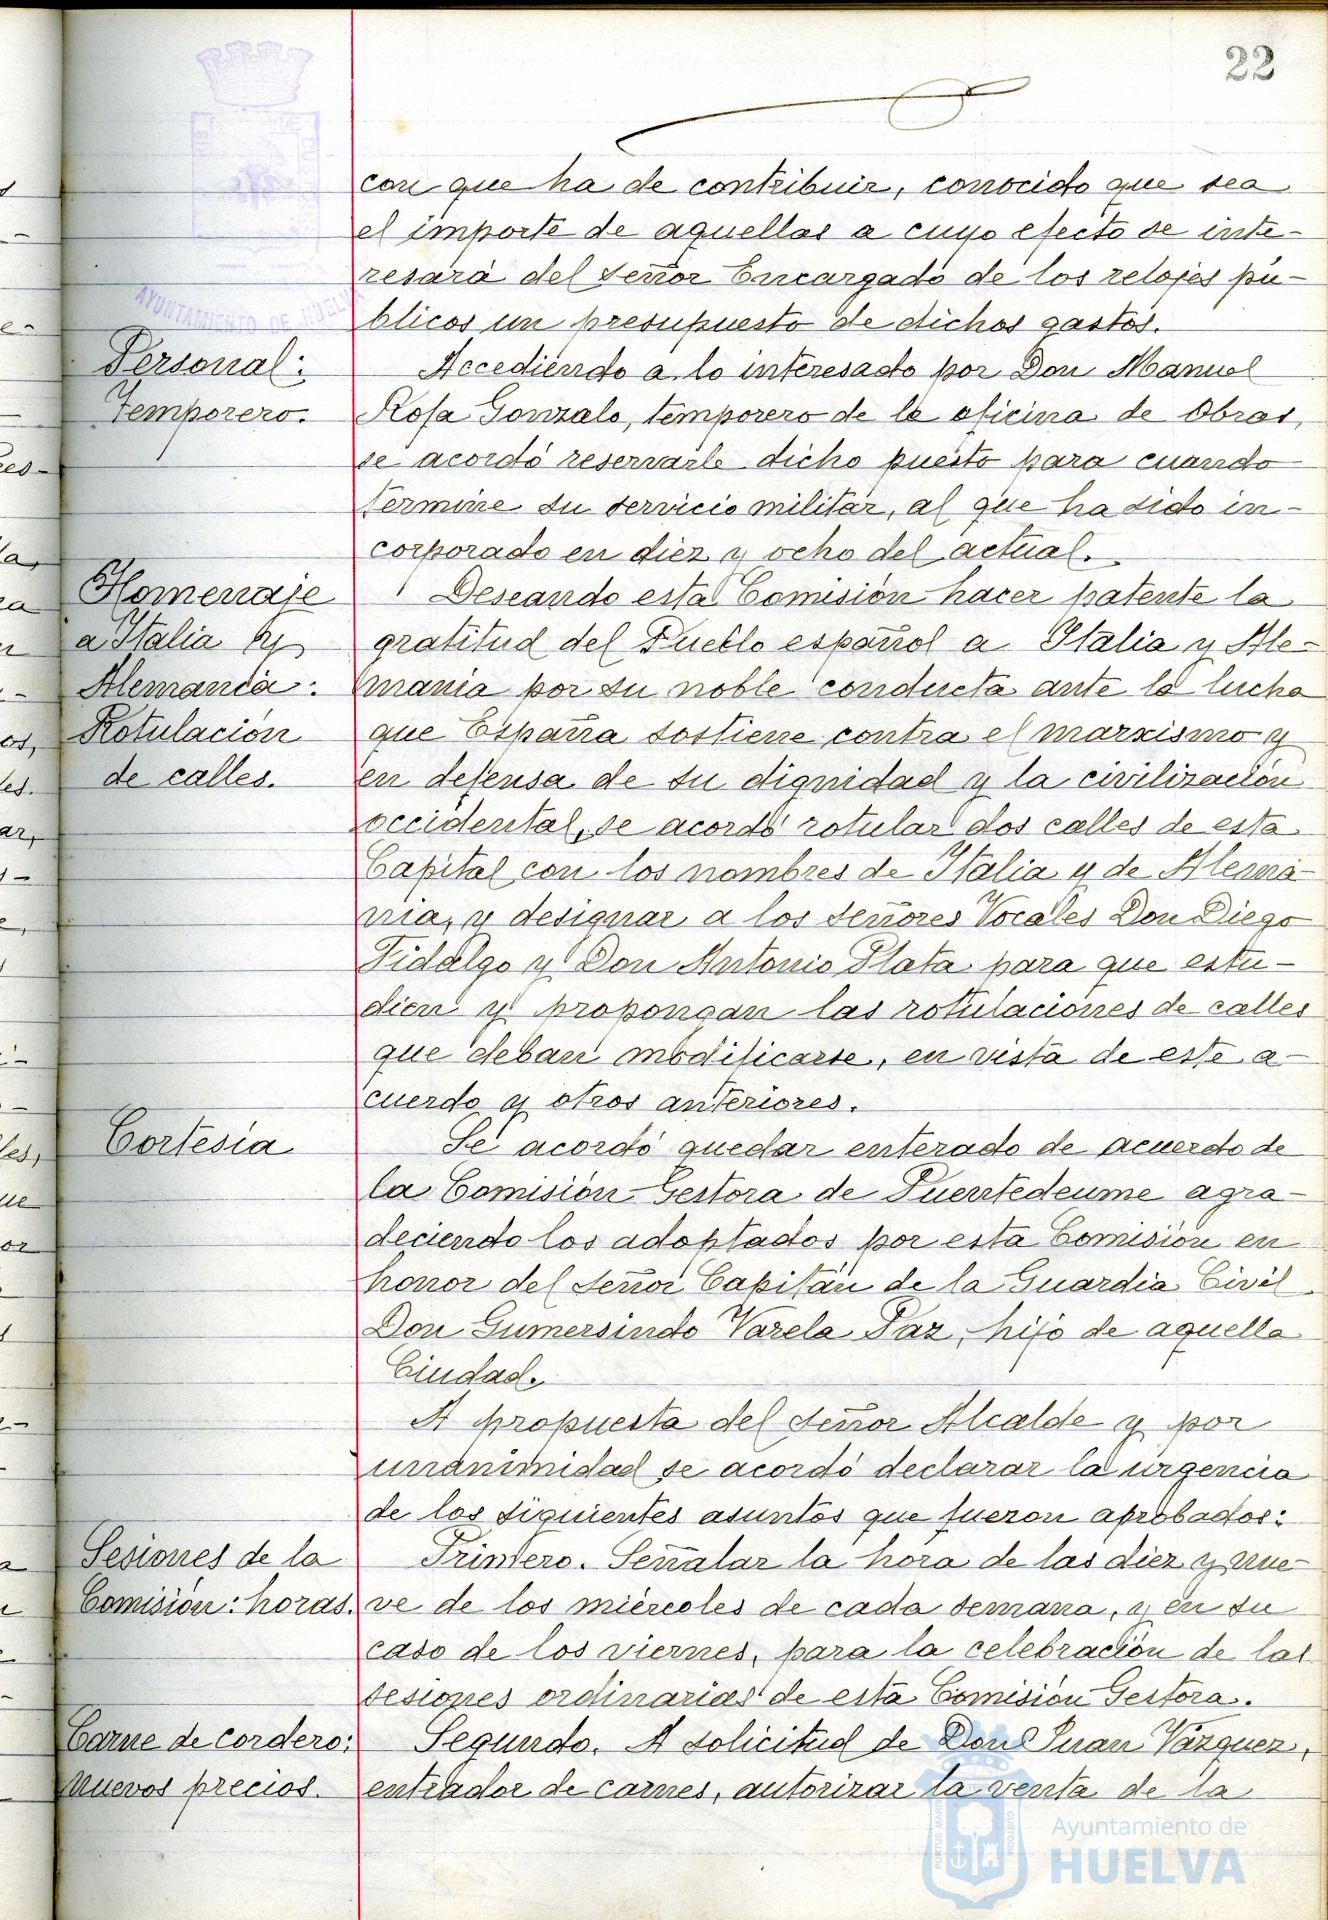 22
con que ha de contribuir, conocido que sea
el importe de aquellas a cuyo efecto se inte-
resará del señor Encargado de los relojes pú-
blicos un presupuesto de dichos gastos.
AYUNTAMIENTO DE HUELVA
Personal:
Temporero.
Accediendo a lo interesado por Don Manuel
Rofa Gonzalo, temporero de la oficina de Obras,
se acordó reservarle dicho puesto para cuando
termine su servicio militar, al que ha sido in-
corporado en diez y ocho del actual.
Homenaje
a Italia y
Alemania:
Rotulación
de calles.
Deseando esta Comisión hacer patente la
gratitud del Pueblo español a Italia y Ale-
mania por su noble conducta ante la lucha
que España sostiene contra el marxismo y
en defensa de su dignidad y la civilización
occidental, se acordó rotular dos calles de esta
Capital con los nombres de Italia y de Alema-
nia, y designar a los señores Vocales Don Diego
Fidalgo y Don Antonio Plata para que estu-
dien y propongan las rotulaciones de calles
que deban modificarse, en vista de este a-
cuerdo y otros anteriores.
Cortesía
Se acordó quedar enterado de acuerdo de
la Comisión Gestora de Puentedeume agra-
deciendo los adoptados por esta Comisión en
honor del señor Capitán de la Guardia Civil
Don Gumersindo Varela Paz, hijo de aquella
Ciudad.
A propuesta del señor Alcalde y por
unanimidad se acordó declarar la urgencia
de los siguientes asuntos que fueron aprobados:
Sesiones de la
Comisión: horas.
Primero. Señalar la hora de las diez y nue-
ve de los miércoles de cada semana, y en su
caso de los viernes, para la celebración de las
sesiones ordinarias de esta Comisión Gestora.
Carne de cordero:
nuevos precios.
Segundo. A solicitud de Don Juan Vázquez,
entrador de carnes, autorizar la venta de la
PORTUS MARIS
CUSTODIA
Ayuntamiento de
HUELVA